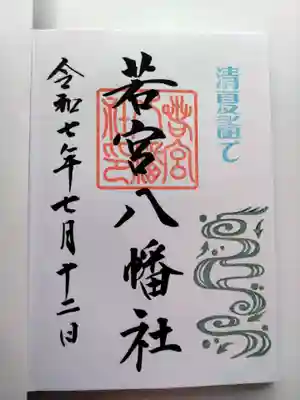 清夏詣で
若宮八幡社
若宮
八幡
社印
令和七年七月十二日